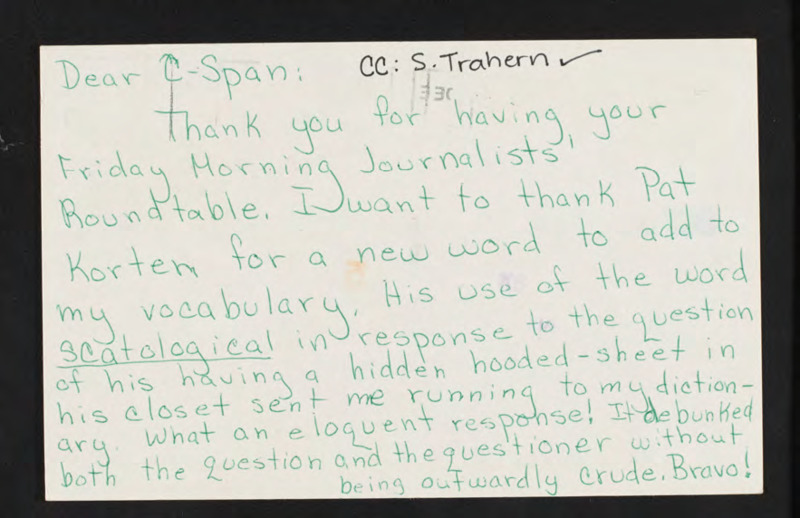 Dear C-Span:
CC: S. Trahern ✓
Thank you for having your
Friday Morning Journalists'
Roundtable. I want to thank Pat
Korten for a new word to add to
my vocabulary. His use of the word
scatological in response to the question
of his having a hidden hooded-sheet in
his closet sent me running to my diction-
ary. What an eloquent response! It debunked
both the question and the questioner without
being outwardly crude. Bravo!